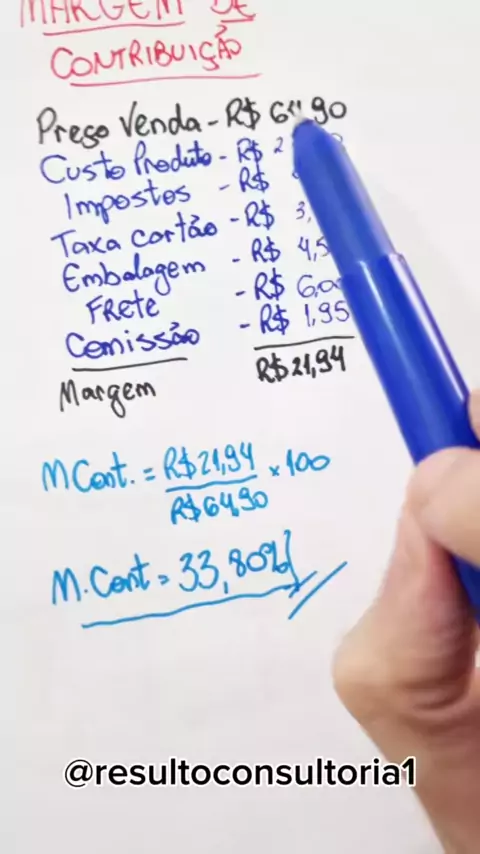 MARGEM DE
CONTRIBUIÇÃO
Preço Venda - R$ 64,90
Custo Produto - R$ 2
Impostos - R$
Taxa cartão - R$ 3,
Embalagem - R$ 4,5
FRETE - R$ 6,0
Comissão - R$ 1,95
Margem R$ 21,94
M Cont. = R$ 21,94 × 100
R$ 64,90
M. Cont = 33,80%
@resultoconsultoria1